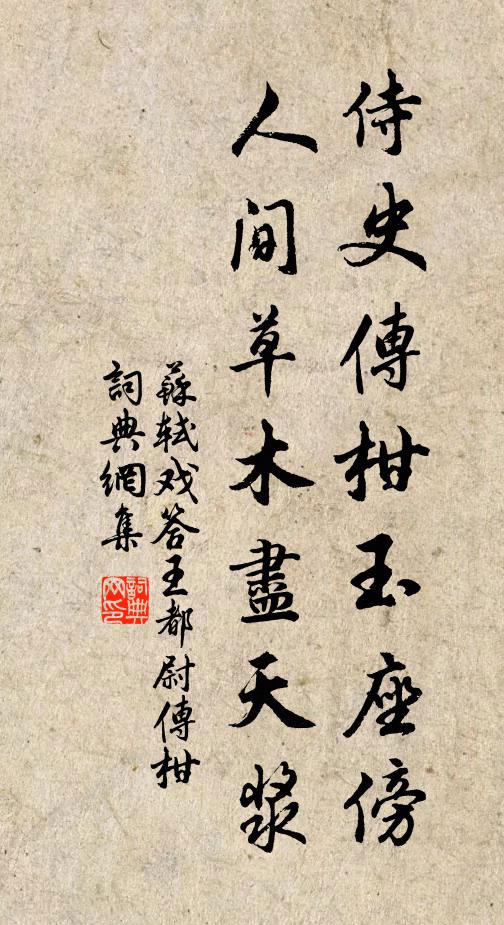 侍史傳柑玉座傍
人間草木盡天漿
蘇軾戏答王都尉傳柑
詞典網集
詞典
网印